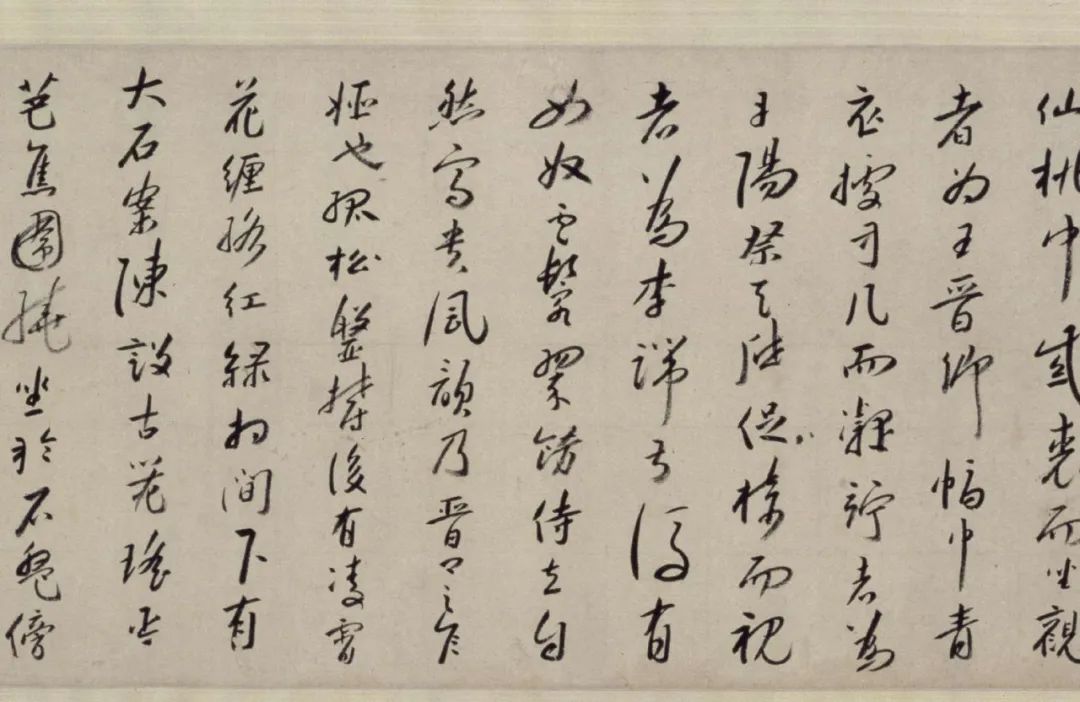 仙桃巾紫裘而坐觀
者为王晋卿幅巾青
衣據方几而凝竚者為
丹陽蔡天啓捉椅而視
者為李端叔後有
女奴雲鬟翠飾侍立自
然富貴風韻乃晋卿之家
姬也孤松盤鬱後有凌霄
花纏絡紅緑相間下有
大石案陳設古器瑤琴
芭蕉圍繞坐於石盤傍